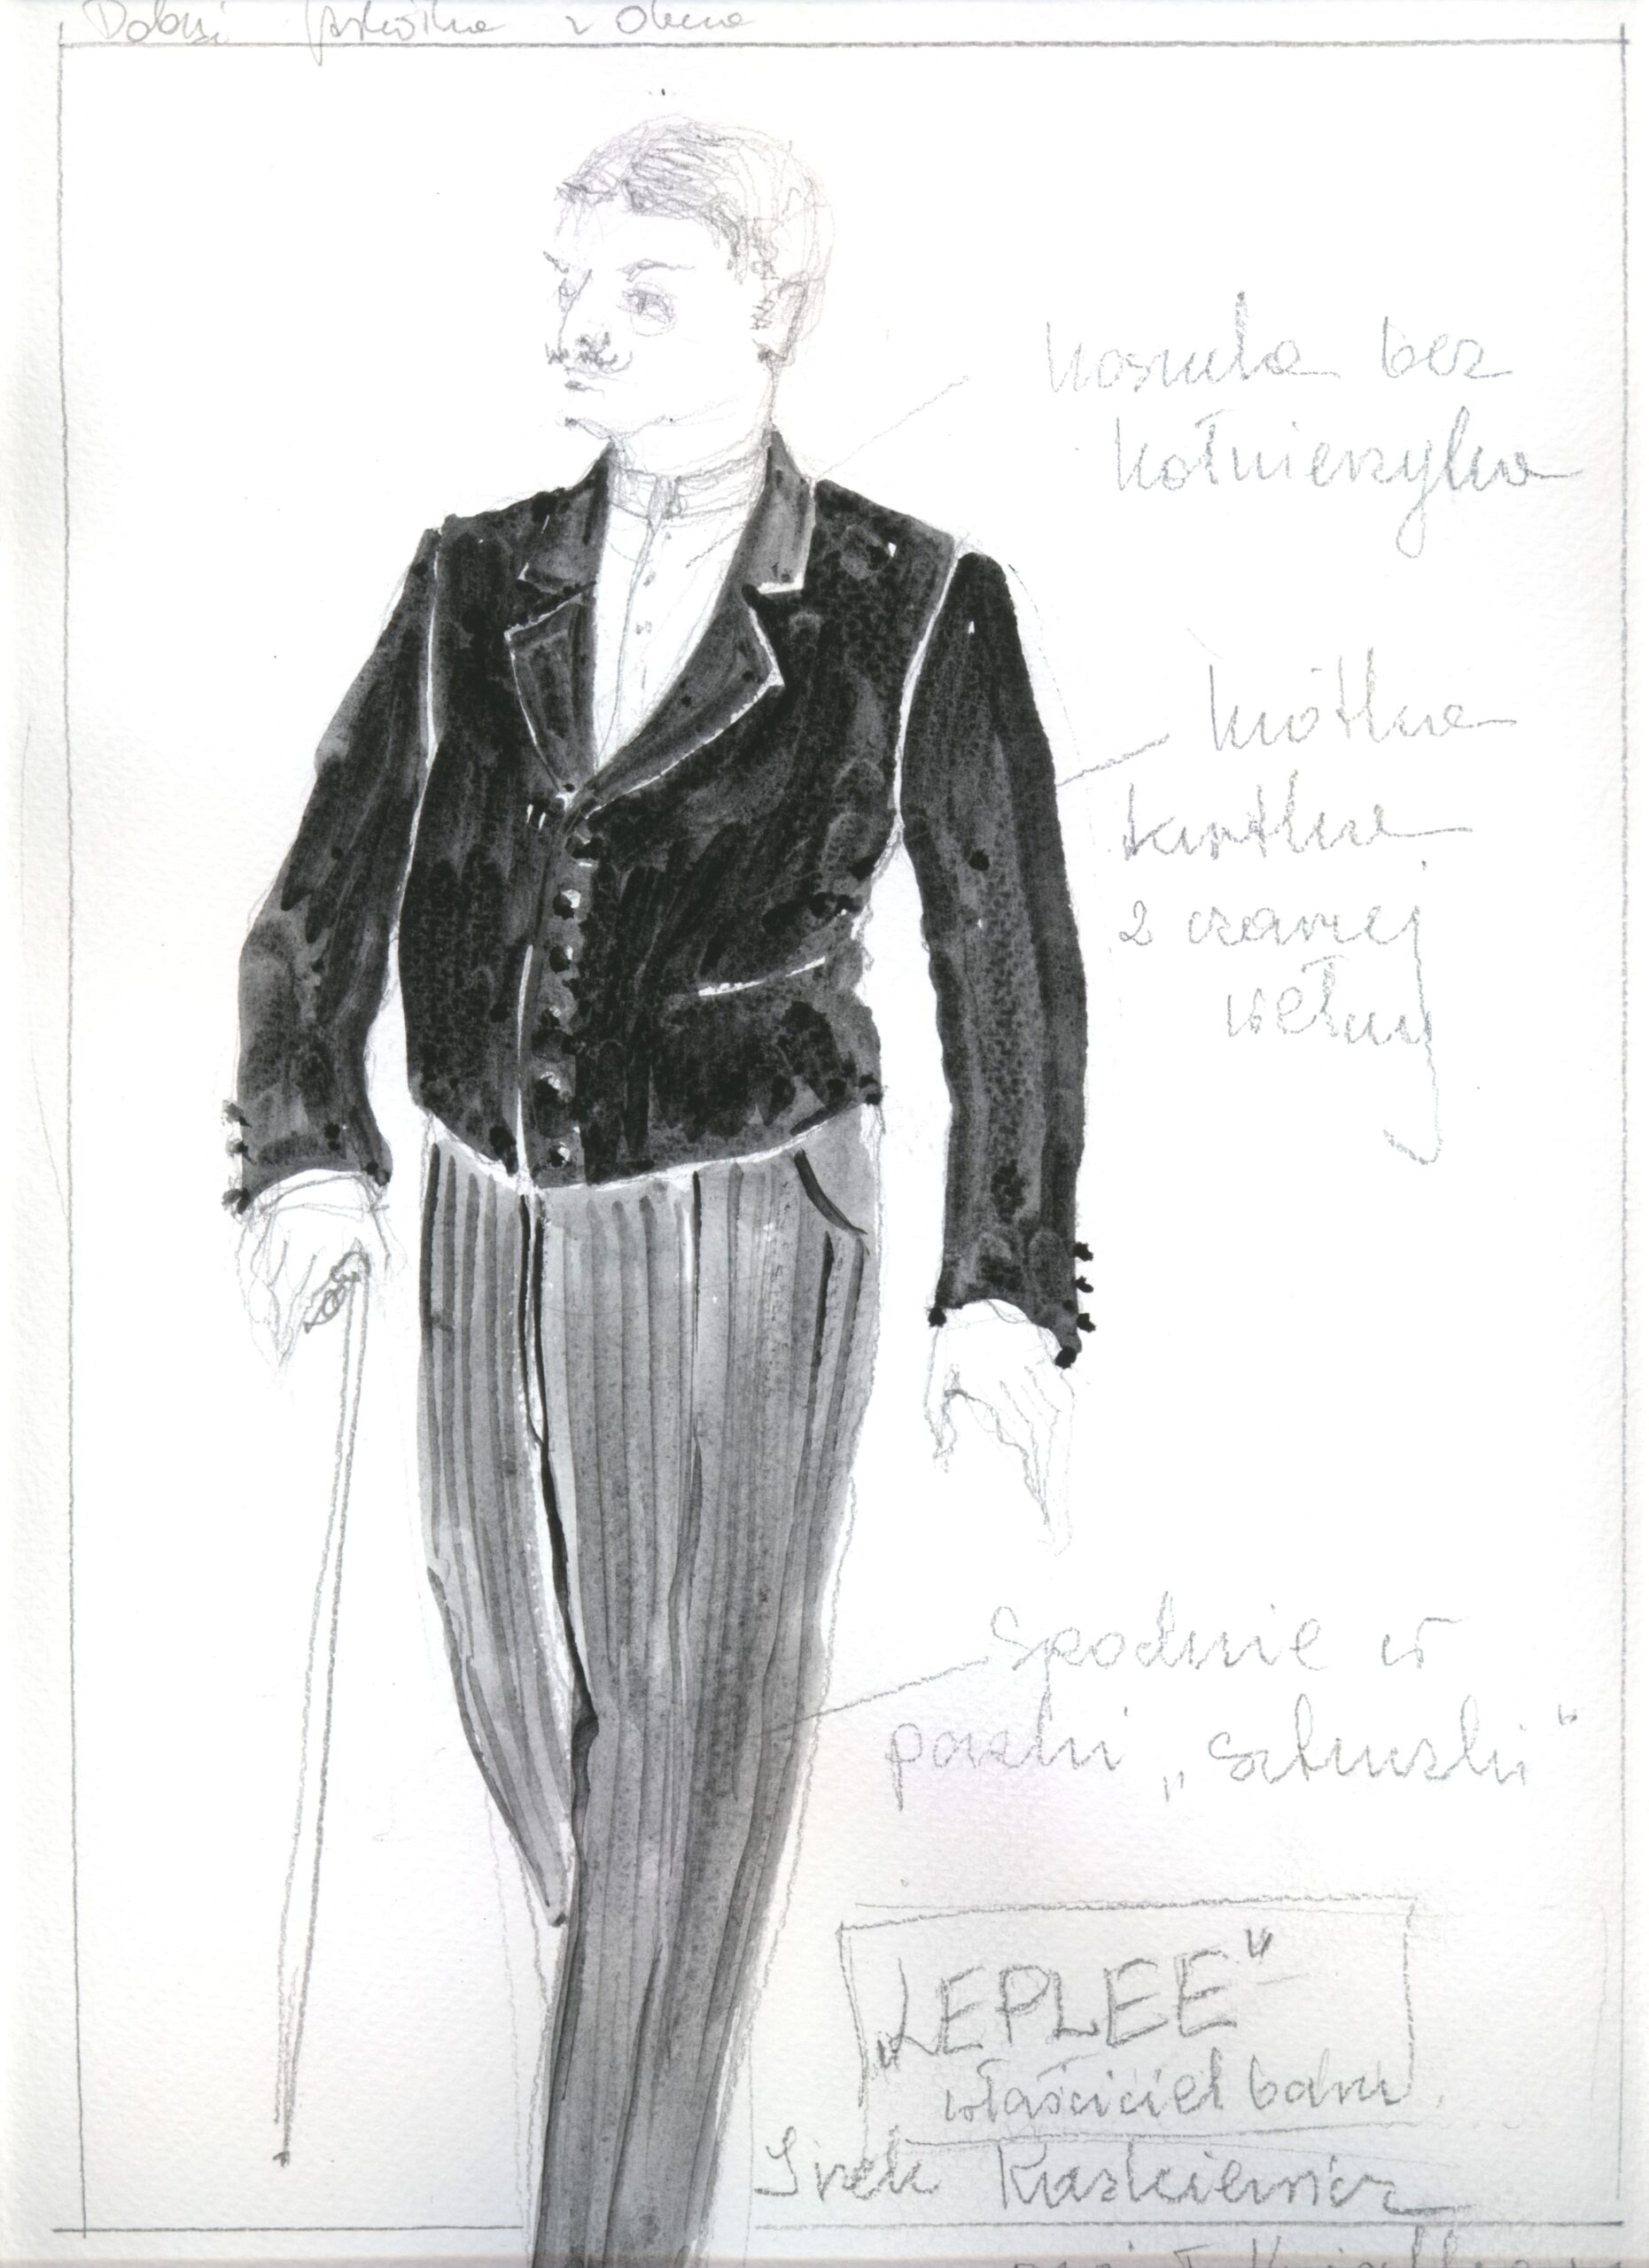 koszula bez
kołnierzyka
krótka
kurtka
z czarnej
wełny
spodnie w
paski „sztuczki”
„LEPLEE”
właściciel baru
Irek Kaskiewicz